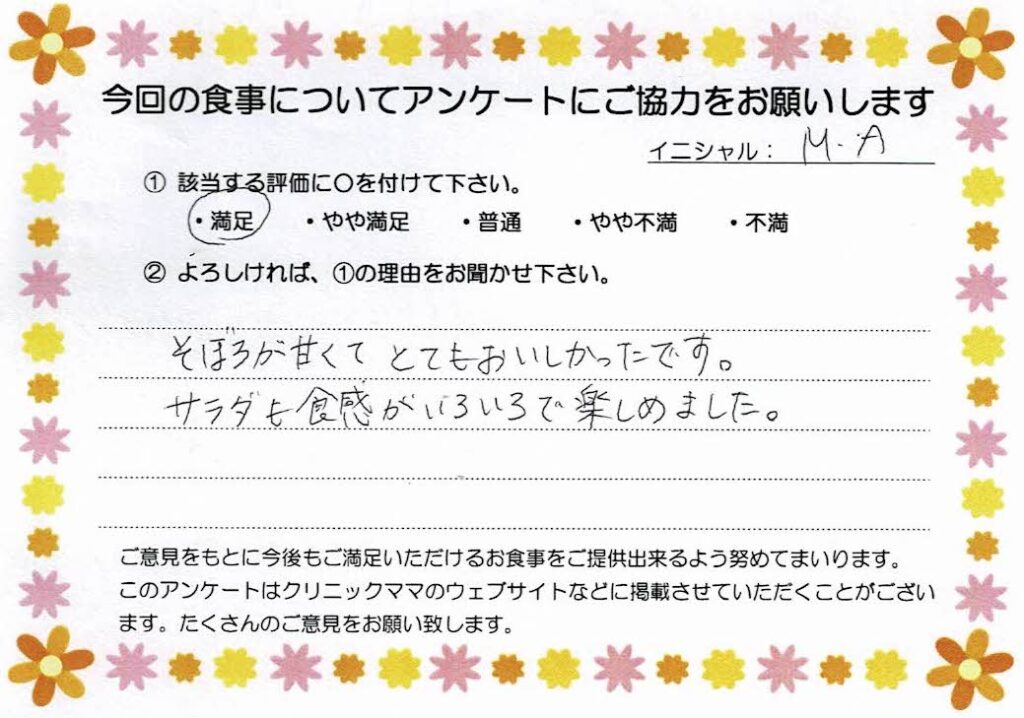 今回の食事についてアンケートにご協力をお願いします
イニシャル： M.A
① 該当する評価に〇を付けて下さい。
・満足 ・やや満足 ・普通 ・やや不満 ・不満
② よろしければ、①の理由をお聞かせ下さい。
そぼろが甘くて とてもおいしかったです。
サラダも食感がいろいろで楽しめました。
ご意見をもとに今後もご満足いただけるお食事をご提供出来るよう努めてまいります。
このアンケートはクリニックママのウェブサイトなどに掲載させていただくことがござい
ます。たくさんのご意見をお願い致します。